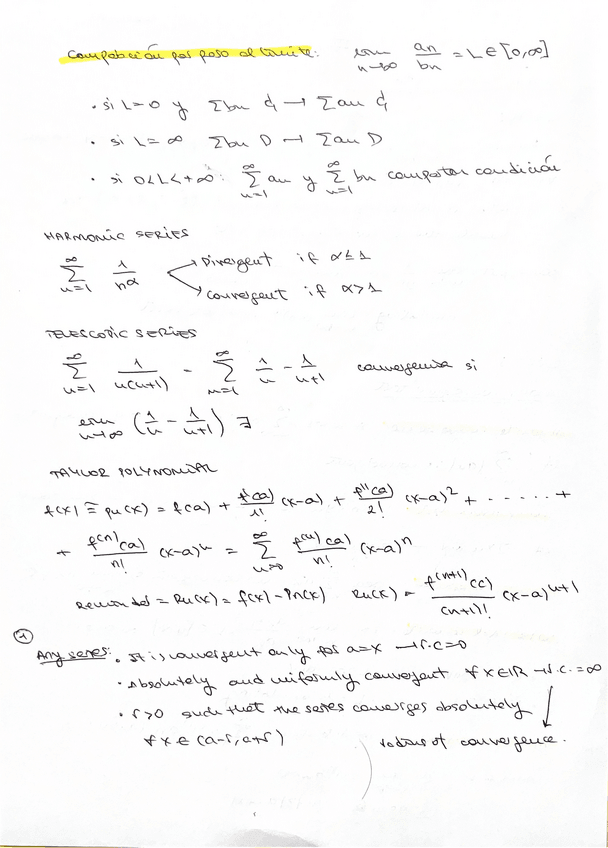 Comparación por paso al límite: lim n→∞ an/bn = L ∈ [0,∞]
• si L=0 y Σbn C → Σan C
• si L=∞ Σbn D → Σan D
• si 0<L<+∞: ∞ Σ n=1 an y ∞ Σ n=1 bn comparten condición
HARMONIC SERIES
∞ Σ n=1 1/n^α
Divergent if α≤1
Convergent if α>1
TELESCOPIC SERIES
∞ Σ n=1 1/n(n+1) = ∞ Σ n=1 1/n - 1/n+1 convergencia si
lim n→∞ (1/n - 1/n+1) ∃
TAYLOR POLYNOMIAL
f(x) ≅ pn(x) = f(a) + f'(a)/1! (x-a) + f''(a)/2! (x-a)² + ...... +
+ f^(n)(a)/n! (x-a)^n = ∞ Σ n=0 f^(n)(a)/n! (x-a)^n
Remainder = Rn(x) = f(x) - Pn(x) Rn(x) = f^(n+1)(c)/(n+1)! (x-a)^n+1
1
Any series: • It is convergent only for a=x → r.c=0
• Absolutely and uniformly convergent ∀x∈ℝ → r.c.=∞
• r>0 such that the series converges absolutely
∀x∈(a-r, a+r) radius of convergence.